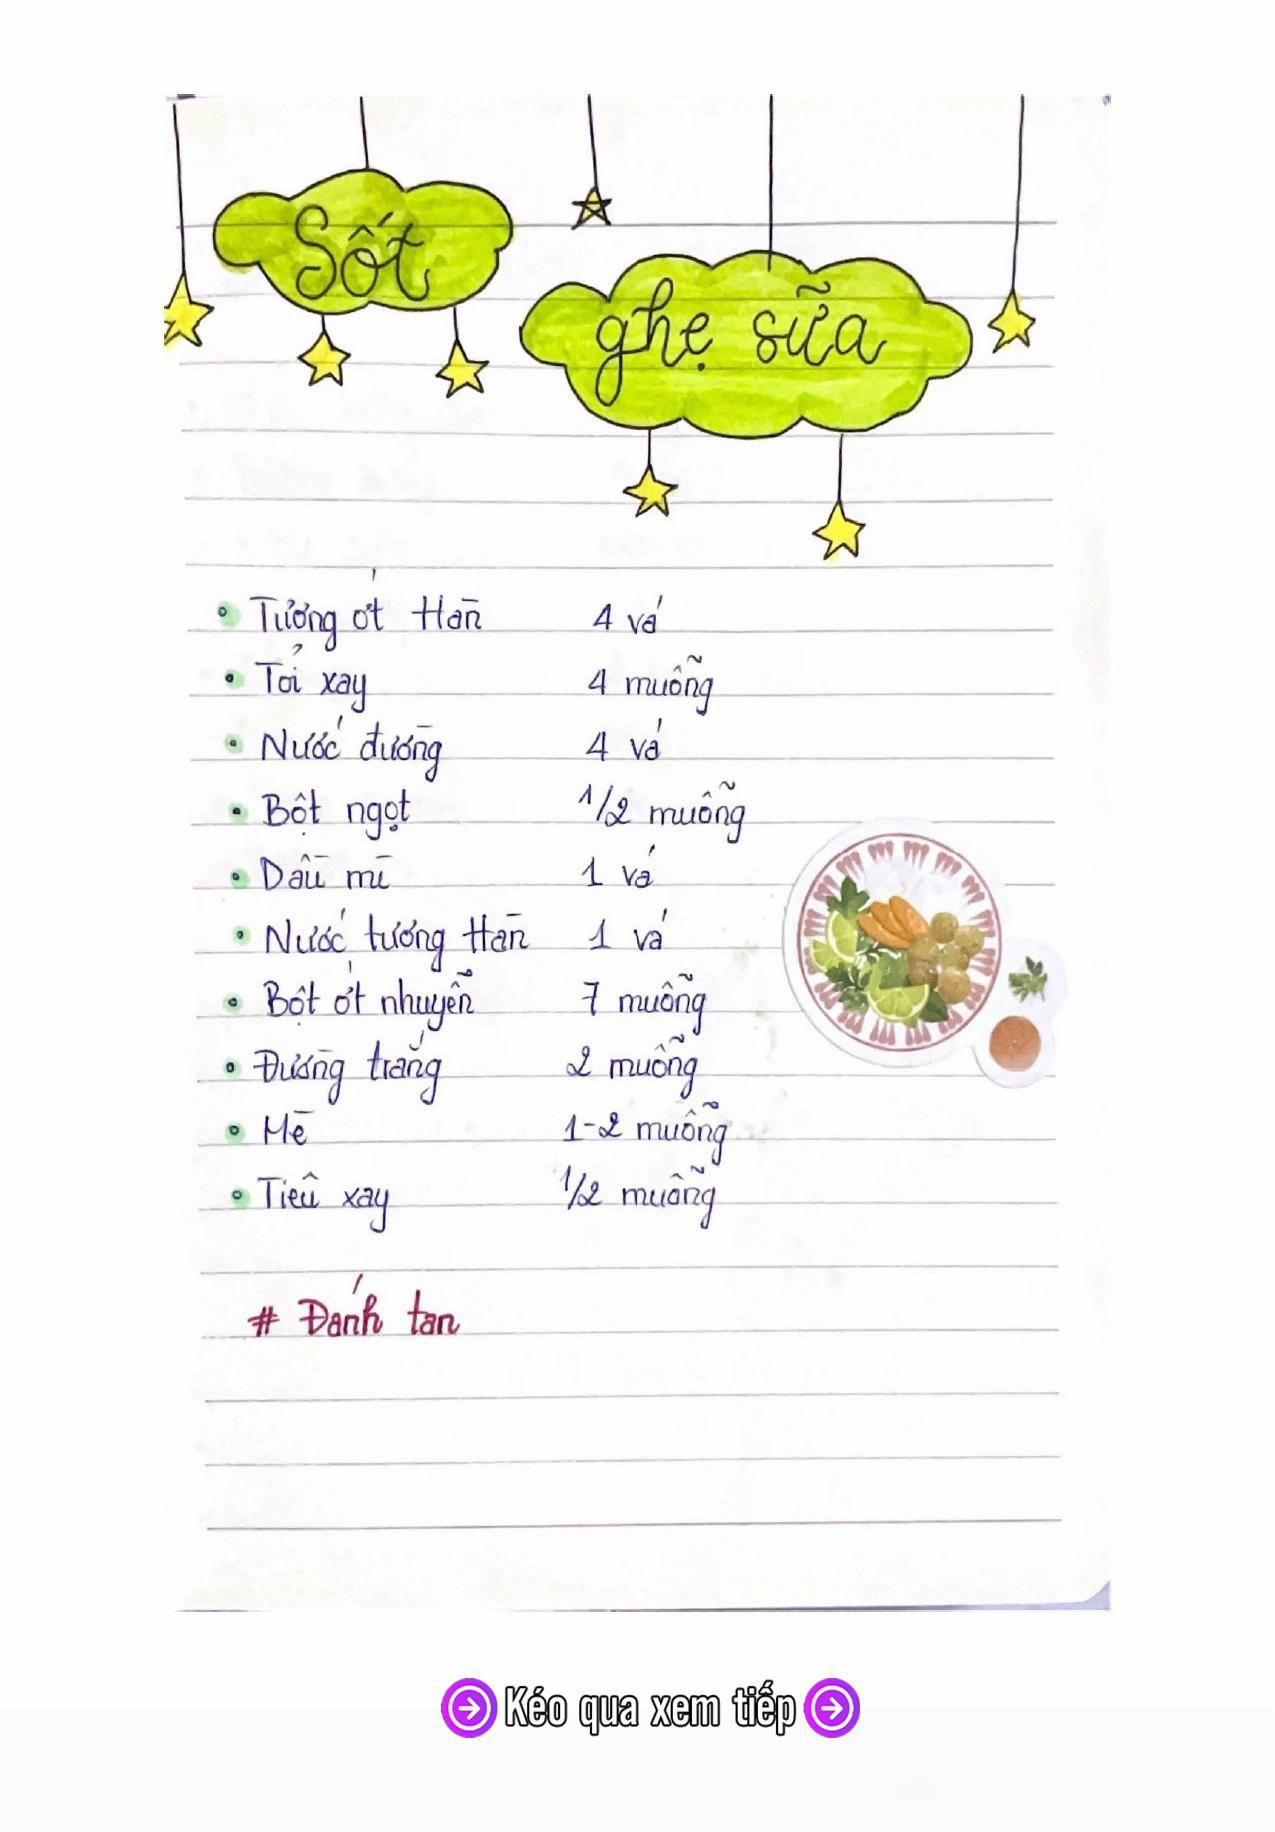 Sốt
ghẹ sữa
Tương ớt Hàn 4 vá
Tỏi xay 4 muỗng
Nước đường 4 vá
Bột ngọt 1/2 muỗng
Dầu mì 1 vá
Nước tương Hàn 1 vá
Bột ớt nhuyễn 7 muỗng
Đường trắng 2 muỗng
Mè 1-2 muỗng
Tiêu xay 1/2 muỗng
# Đánh tan
Kéo qua xem tiếp